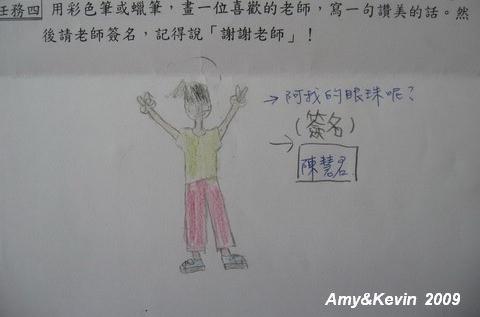 任務四 用彩色筆或蠟筆，畫一位喜歡的老師，寫一句讚美的話。然
後請老師簽名，記得說「謝謝老師」！
→阿我的眼珠呢？
(簽名)
→
陳慧名
Amy&Kevin 2009